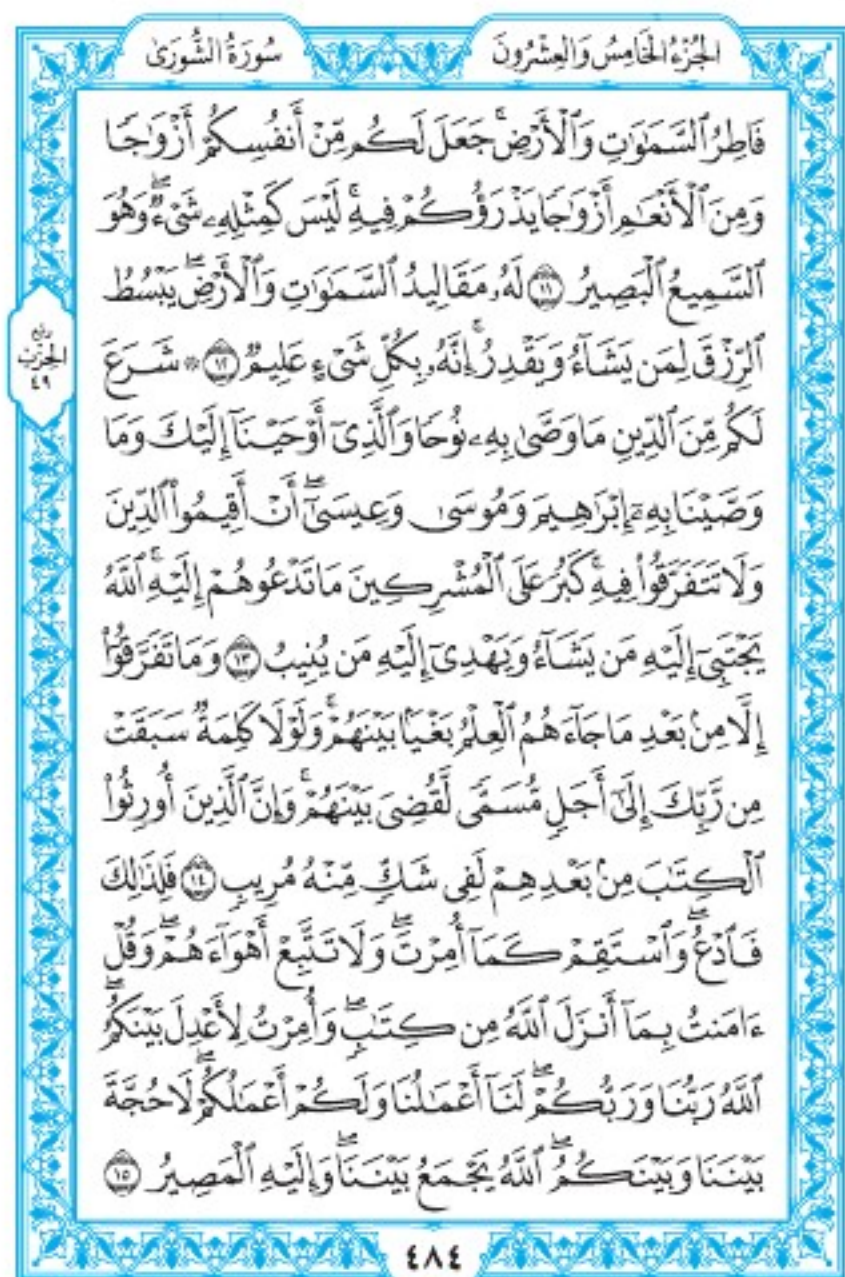 الجُزْءُ الخَامِسُ وَالعِشْرُونَ
سُورَةُ الشُّورَىٰ
فَاطِرُ ٱلسَّمَٰوَٰتِ وَٱلْأَرْضِۚ جَعَلَ لَكُم مِّنْ أَنفُسِكُمْ أَزْوَٰجًا
وَمِنَ ٱلْأَنْعَٰمِ أَزْوَٰجًا يَذْرَؤُكُمْ فِيهِۚ لَيْسَ كَمِثْلِهِۦ شَىْءٌۖ وَهُوَ
ٱلسَّمِيعُ ٱلْبَصِيرُ ١١ لَهُۥ مَقَالِيدُ ٱلسَّمَٰوَٰتِ وَٱلْأَرْضِۖ يَبْسُطُ
ٱلرِّزْقَ لِمَن يَشَآءُ وَيَقْدِرُۚ إِنَّهُۥ بِكُلِّ شَىْءٍ عَلِيمٌ ١٢ ۞ شَرَعَ
رُبْع
الحِزْب
٤٩
لَكُم مِّنَ ٱلدِّينِ مَا وَصَّىٰ بِهِۦ نُوحًا وَٱلَّذِىٓ أَوْحَيْنَآ إِلَيْكَ وَمَا
وَصَّيْنَا بِهِۦٓ إِبْرَٰهِيمَ وَمُوسَىٰ وَعِيسَىٰٓۖ أَنْ أَقِيمُوا۟ ٱلدِّينَ
وَلَا تَتَفَرَّقُوا۟ فِيهِۚ كَبُرَ عَلَى ٱلْمُشْرِكِينَ مَا تَدْعُوهُمْ إِلَيْهِۚ ٱللَّهُ
يَجْتَبِىٓ إِلَيْهِ مَن يَشَآءُ وَيَهْدِىٓ إِلَيْهِ مَن يُنِيبُ ١٣ وَمَا تَفَرَّقُوٓا۟
إِلَّا مِنۢ بَعْدِ مَا جَآءَهُمُ ٱلْعِلْمُ بَغْيًۢا بَيْنَهُمْۚ وَلَوْلَا كَلِمَةٌ سَبَقَتْ
مِن رَّبِّكَ إِلَىٰٓ أَجَلٍ مُّسَمًّى لَّقُضِىَ بَيْنَهُمْۚ وَإِنَّ ٱلَّذِينَ أُورِثُوا۟
ٱلْكِتَٰبَ مِنۢ بَعْدِهِمْ لَفِى شَكٍّ مِّنْهُ مُرِيبٍ ١٤ فَلِذَٰلِكَ
فَٱدْعُۖ وَٱسْتَقِمْ كَمَآ أُمِرْتَۖ وَلَا تَتَّبِعْ أَهْوَآءَهُمْۖ وَقُلْ
ءَامَنتُ بِمَآ أَنزَلَ ٱللَّهُ مِن كِتَٰبٍۖ وَأُمِرْتُ لِأَعْدِلَ بَيْنَكُمُۖ
ٱللَّهُ رَبُّنَا وَرَبُّكُمْۖ لَنَآ أَعْمَٰلُنَا وَلَكُمْ أَعْمَٰلُكُمْۖ لَا حُجَّةَ
بَيْنَنَا وَبَيْنَكُمُۖ ٱللَّهُ يَجْمَعُ بَيْنَنَاۖ وَإِلَيْهِ ٱلْمَصِيرُ ١٥
٤٨٤